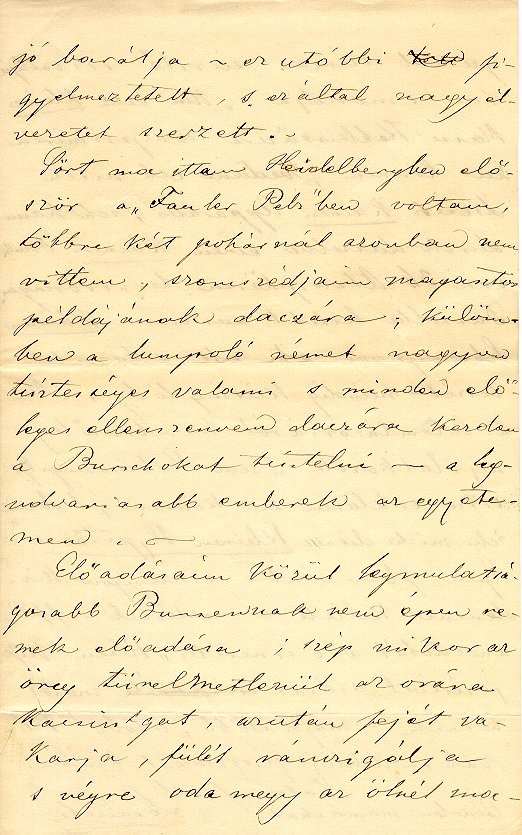 jó barátja – ez utóbbi fi-
gyelmeztetett, s ezáltal nagy él-
vezetet szerzett. –
Sört ma ittam Heidelbergben elő-
ször a „Fauler Pelz"ben voltam,
többre két pohárnál azonban nem
vittem, szomszédjaim magasztos
példájának daczára; külöm-
ben a lumpoló német nagyon
tisztességes valami s minden elő-
leges ellenszenvem daczára kezdem
a Burschokat tisztelni – a leg-
udvariasabb emberek az egyete-
men. –
Előadásaim közül legmulatsá-
gosabb Bunsennak nem épen re-
mek előadása; szép mikor az
öreg türelmetlenül az órára
kacsintgat, azután fejét va-
karja, fülét ránczigálja
s végre oda megy az ölnél ma-